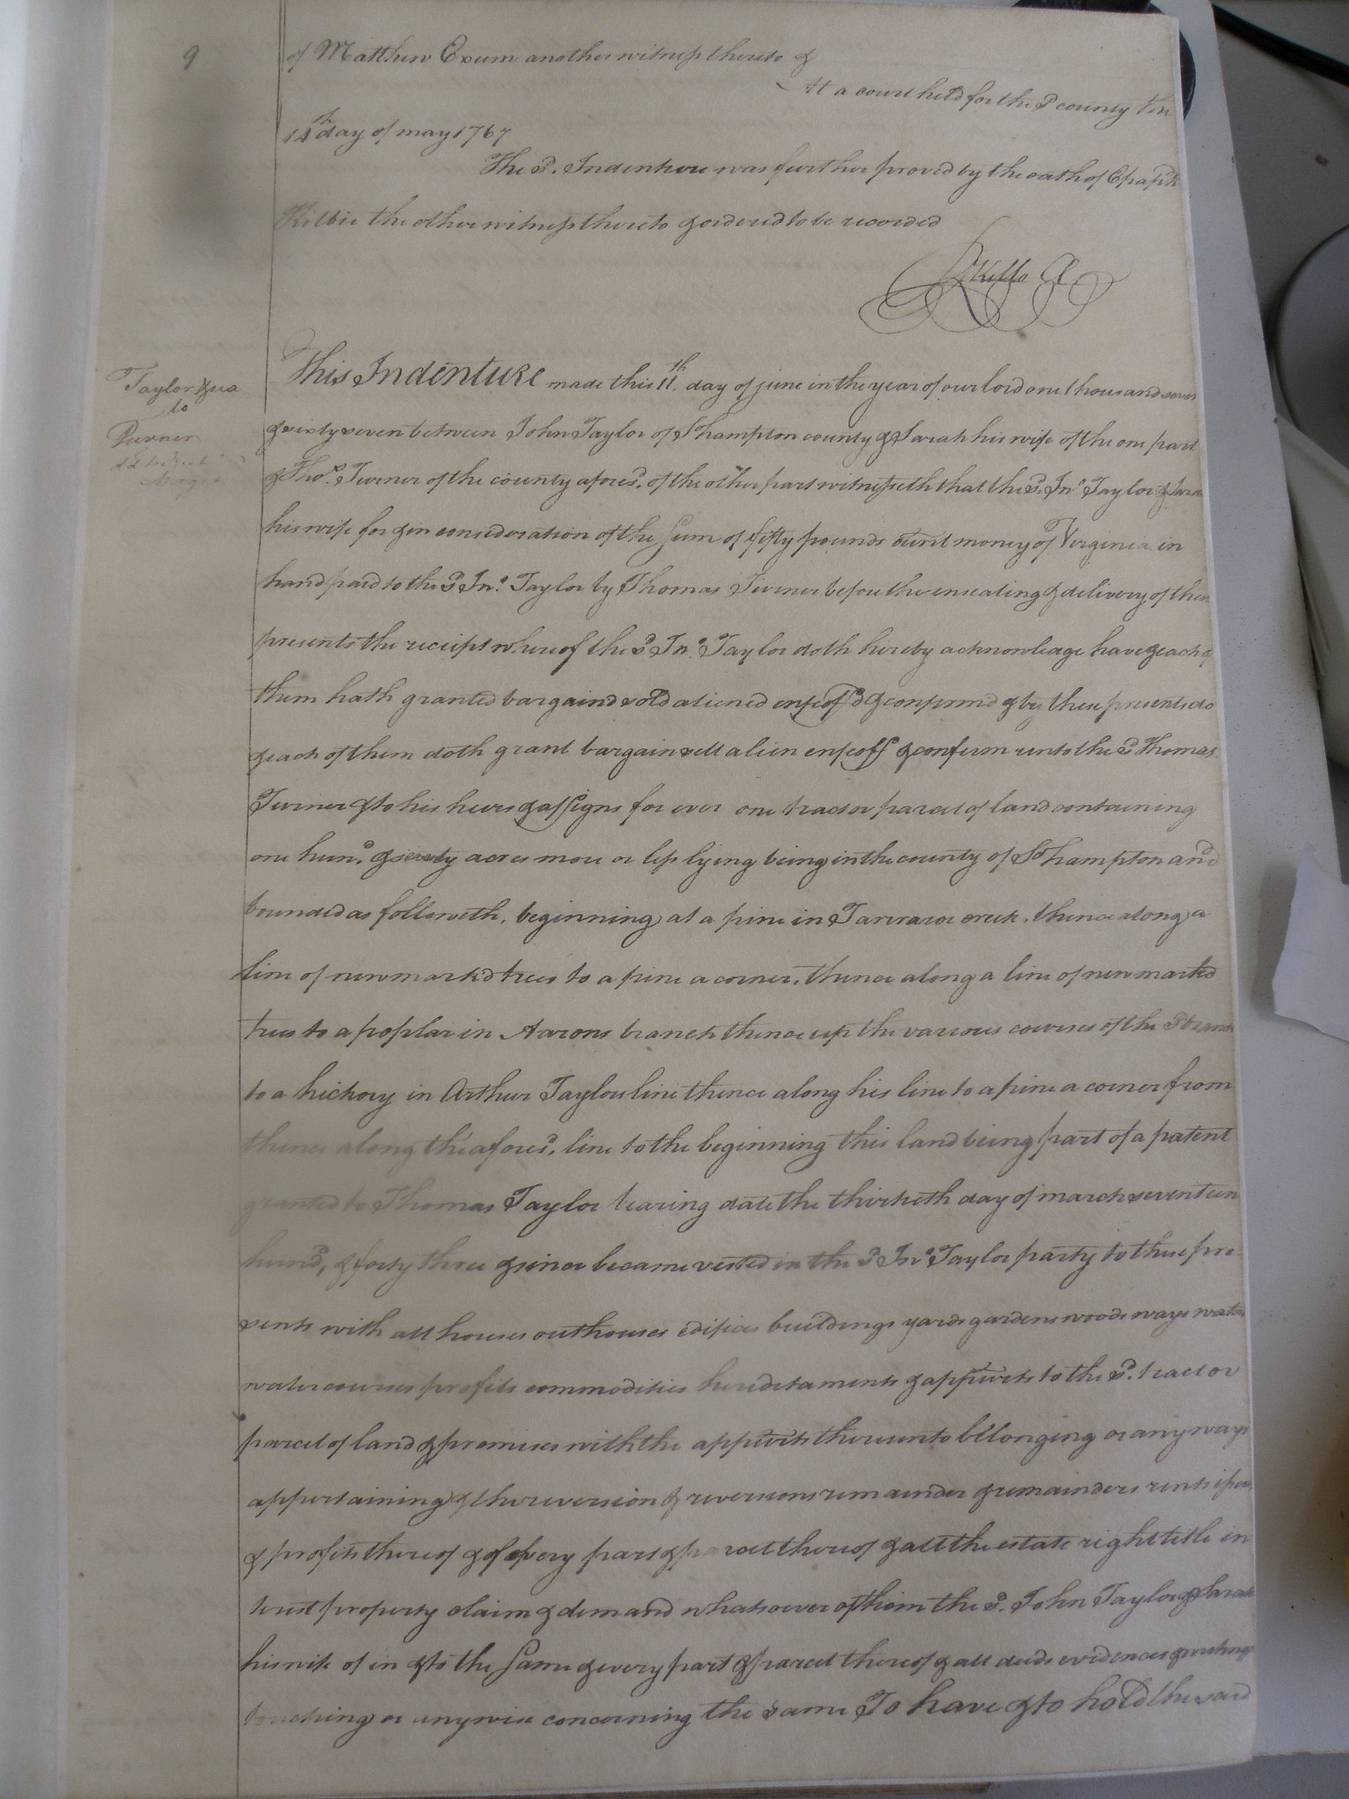 9
of Matthew Exum another witness thereto &
At a court held for the sd county the
14th day of may 1767
The sd. Indenture was further proved by the oath of
Kilbie the other witness thereto & ordered to be recorded
Kello Cl
Taylor & ux
to
Turner
This Indenture made this 11th day of june in the year of our lord one thousand seven
& sixty seven between John Taylor of Shampton county & Sarah his wife of the one part
& Thos. Turner of the county aforesd. of the other part witnesseth that the sd. Jno. Taylor & Sarah
his wife for & in consideration of the Sum of fifty pounds currt money of Virginia in
hand paid to the sd Jno. Taylor by Thomas Turner before the ensealing & delivery of these
presents the receipt whereof the sd Jno. Taylor doth hereby acknowledge have & each of
them hath granted bargaind sold aliened enfeoff'd & confirmd & by these presents do
& each of them doth grant bargain sell alien enfeoff & confirm unto the sd Thomas
Turner & to his heirs & assigns for ever one tract or parcel of land containing
one hund. & acres more or less lying being in the county of Sohampton and
bounded as followeth, beginning at a pine in Tarraroe creek, thence along a
line of new mark'd trees to a pine a corner, thence along a line of new marked
trees to a poplar in Aarons branch thence up the various courses of the sd branch
to a hickory in Arthur Taylors line thence along his line to a pine a corner from
thence along the aforesd. line to the beginning this land being part of a patent
granted to Thomas Taylor bearing date the thirtieth day of march seventeen
hund, & forty three & since became vested in the sd Jno. Taylor party to these pre
sents with all houses outhouses edifices buildings yards gardens woods ways waters
watercourses profits commodities hereditaments & appurts to the sd. tract or
parcel of land & premises with the appurts thereunto bllonging or any ways
appertaining & the reversion & reversions remainder & remainders rents issues
& profits thereof & of every part & parcel thereof & all the estate right title in
terest property claim & demand whatsoever of them the sd. John Taylor & Sarah
his wife of in & to the Same & every part & parcel thereof & all deeds evidences & writings
touching or anywise concerning the same To have & to hold the said